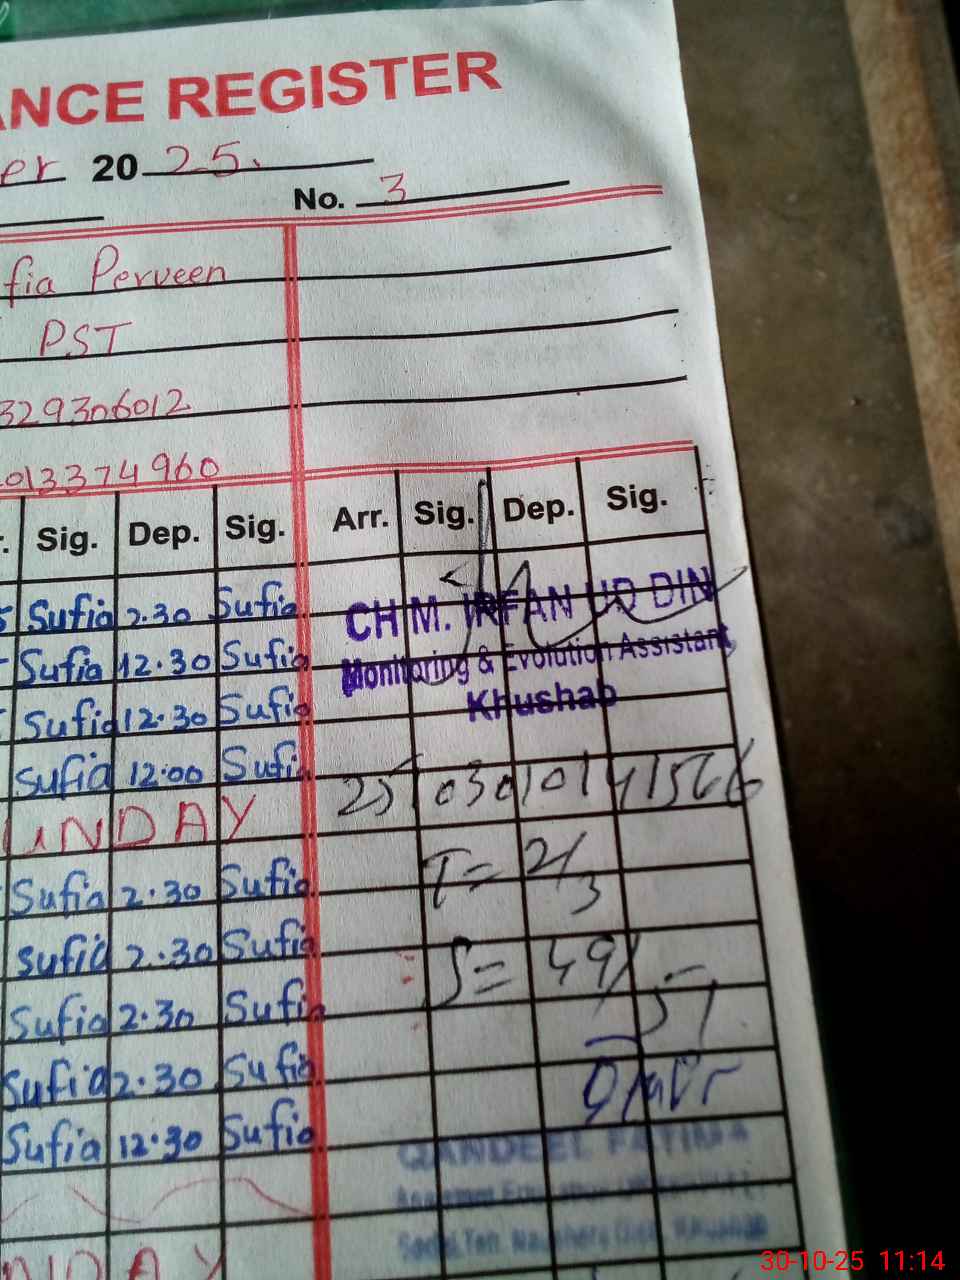 ANCE REGISTER
er 20 25.
No. 3
fia Perveen
PST
329306012
013374960
Sig. Dep. Sig. Arr. Sig. Dep. Sig.
Sufia 2.30 Sufia
CH M. IRFAN UD DIN
Sufia 12.30 Sufia
Monitoring & Evolution Assistant
Khushab
Sufia 12.30 Sufia
Sufia 12.00 Sufia
UNDAY
T = 2/3
Sufia 2.30 Sufia
Sufia 2.30 Sufia
S = 49/51
Sufia 2.30 Sufia
Sufia 2.30 Sufia
Sufia 12.30 Sufia
QANDEEL FATIMA
NDAY
30-10-25 11:14